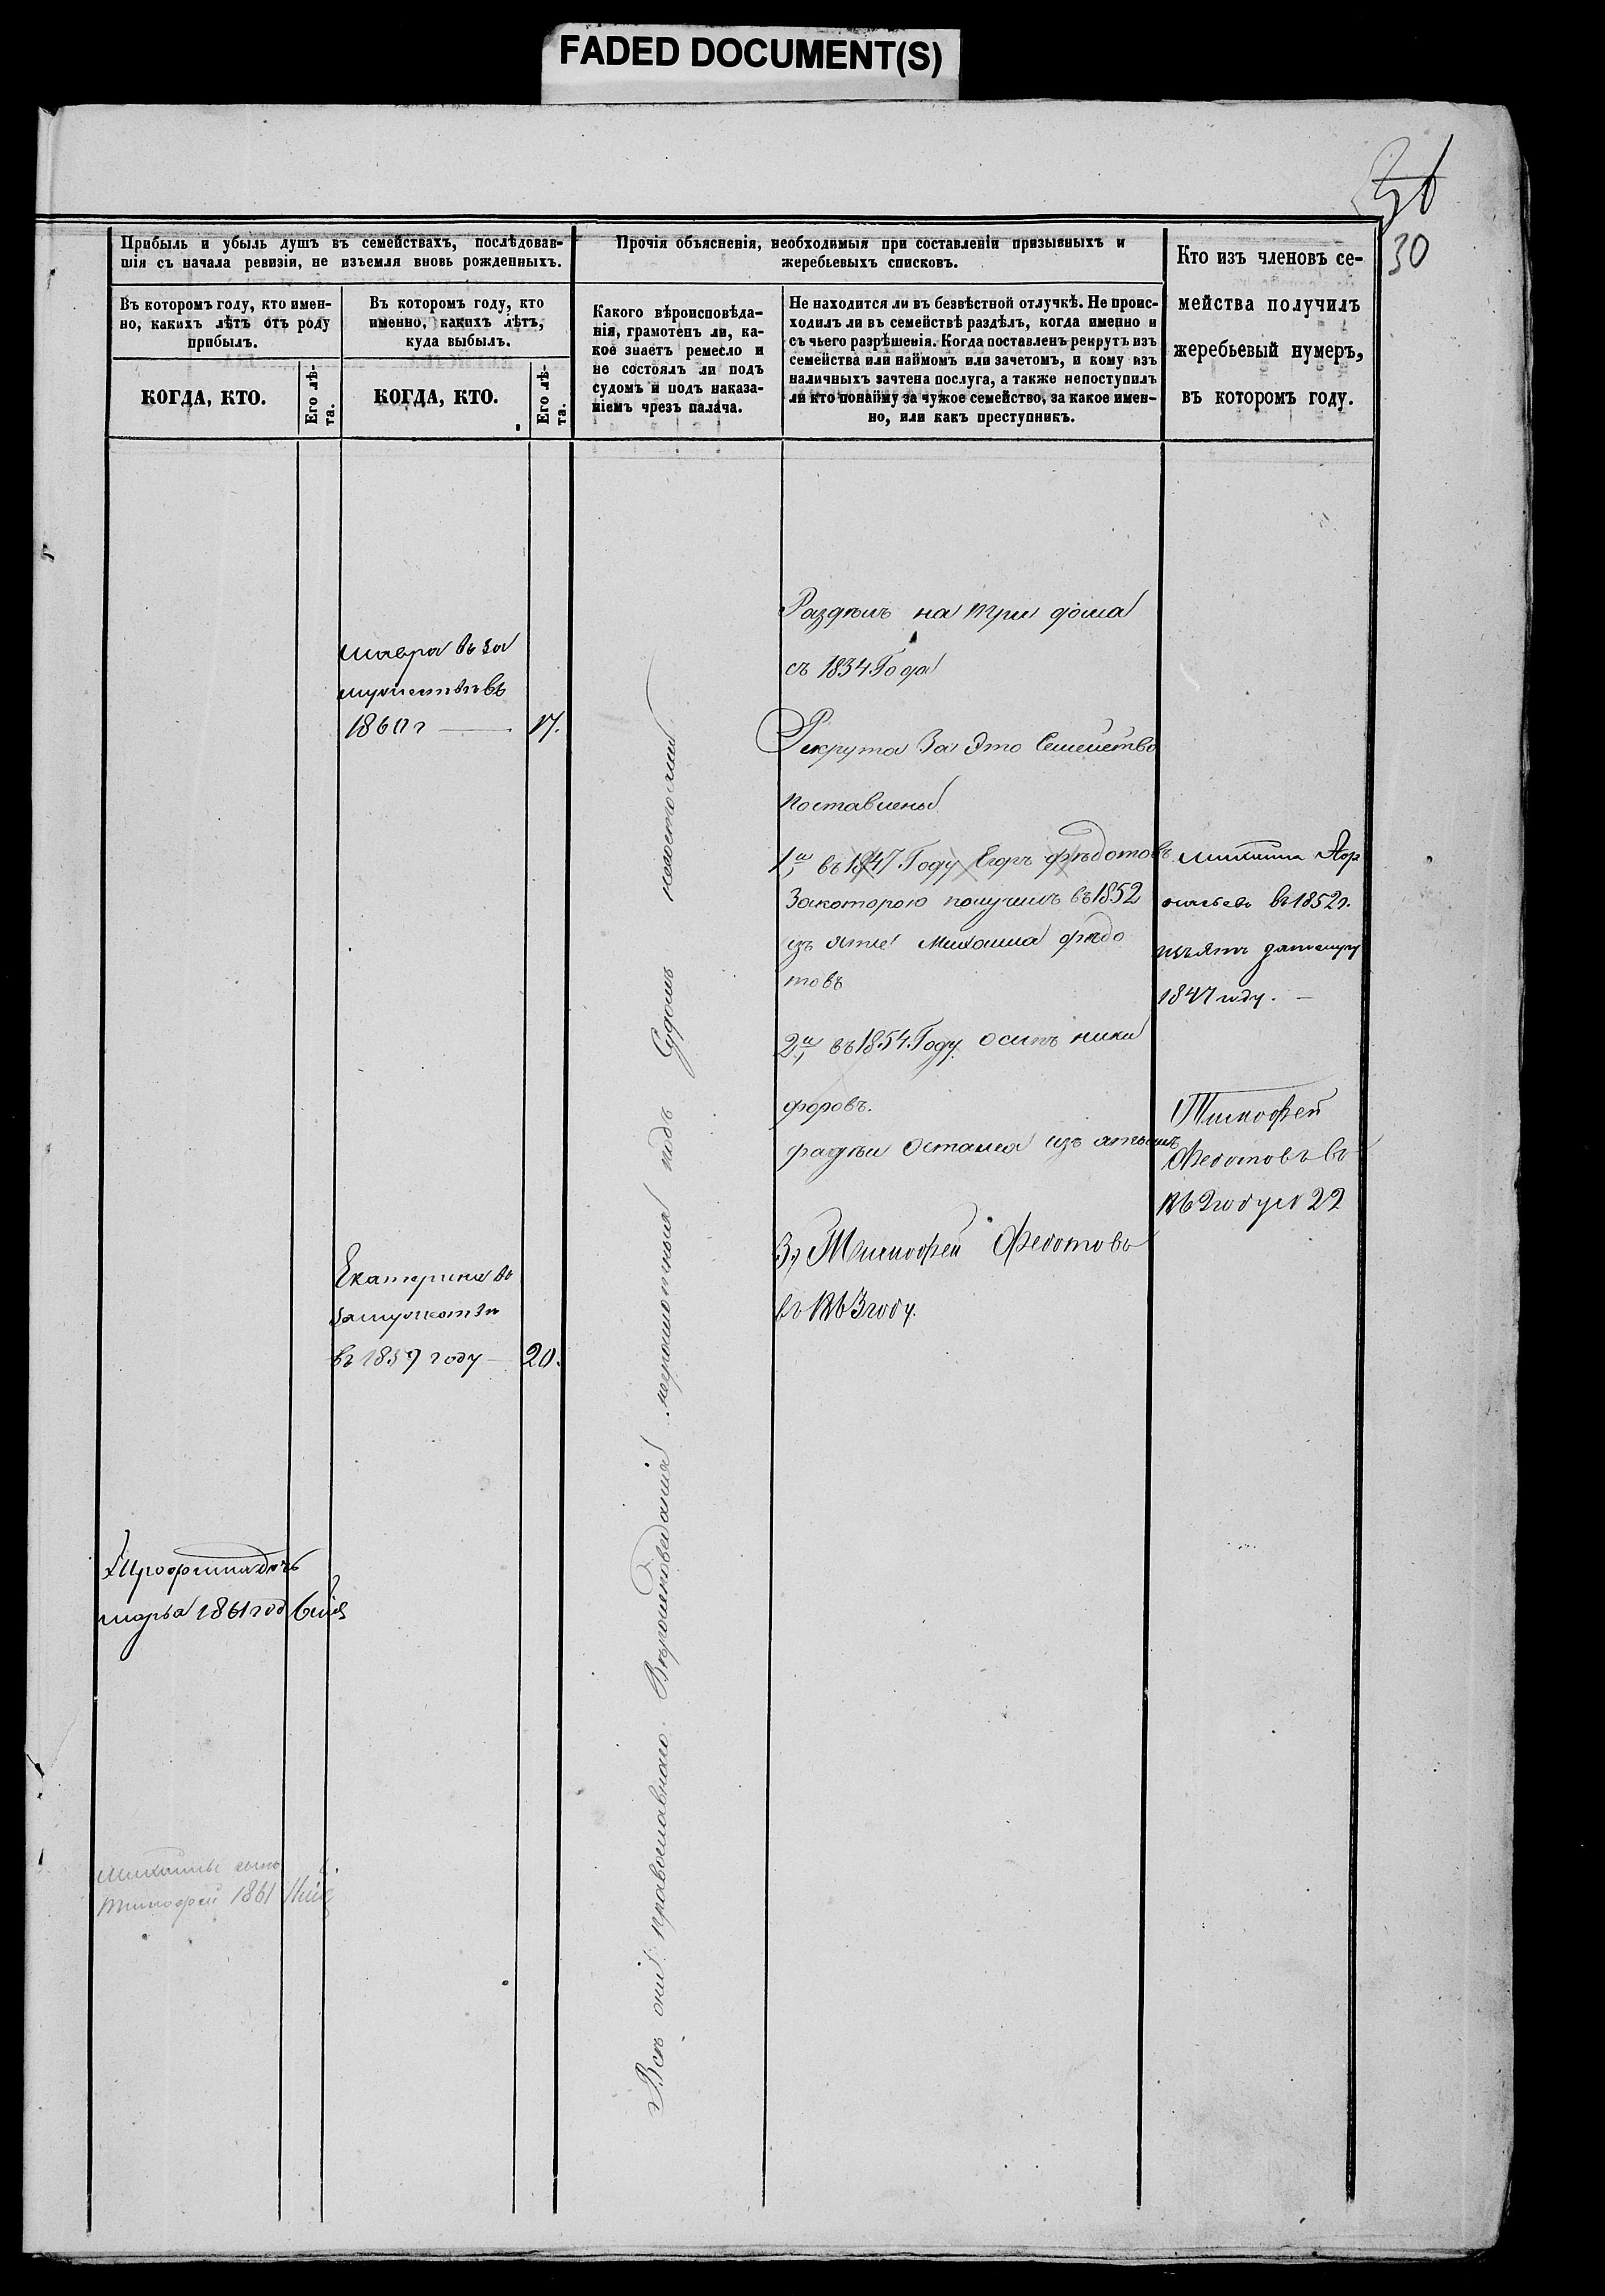 FADED DOCUMENT(S)
30
Прибыль и убыль душъ въ семействахъ, послѣдовав-
шія съ начала ревизіи, не изъемля вновь рожденныхъ.
Въ которомъ году, кто имен-
но, какихъ лѣтъ отъ роду
прибылъ.
КОГДА, КТО.
Его лѣ-
та.
Въ которомъ году, кто
именно, какихъ лѣтъ,
куда выбылъ.
КОГДА, КТО.
Его лѣ-
та.
Прочія объясненія, необходимыя при составленіи призывныхъ и
жеребьевыхъ списковъ.
Какого вѣроисповѣда-
нія, грамотенъ ли, ка-
кое знаетъ ремесло и
не состоялъ ли подъ
судомъ и подъ наказа-
ніемъ чрезъ палача.
Не находится ли въ безвѣстной отлучкѣ. Не проис-
ходилъ ли въ семействѣ раздѣлъ, когда именно и
съ чьего разрѣшенія. Когда поставленъ рекрутъ изъ
семейства или наймомъ или зачетомъ, и кому изъ
наличныхъ зачтена послуга, а также непоступилъ
ли кто понайму за чужое семейство, за какое имен-
но, или какъ преступникъ.
Кто изъ членовъ се-
мейства получилъ
жеребьевый нумеръ,
въ которомъ году.
мавра въ за
мужествѣ въ
1860 г 17.
Екатерина въ
замужествѣ
въ 1859 году 20.
дочь
марья 1861 год
сынъ
тимофей 1861
Всѣ они православнаго Вѣроисповеданія неграмотныя подъ Судомъ несостояли
Раздѣлъ на три дома
съ 1834 Года
Рекрута За Это Семейство
поставлены
1й въ 1847 Году Егоръ фѣдотовъ
Закоторою получилъ въ 1852
изъ ятие Михаила фѣдо
товъ
2й въ 1854 Году осипъ ники
форовъ.
3, Тимофей Федотовъ
въ 1863 году.
въ 1852 г.
изъятъ
1847 году.
Тимофей
Федотовъ въ
1862 году № 22